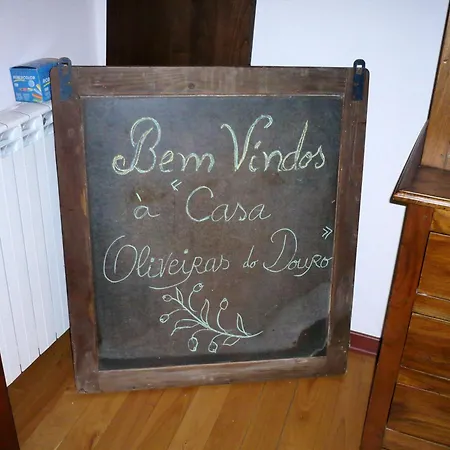 Bem Vindos
à "Casa
Oliveiras do Douro"